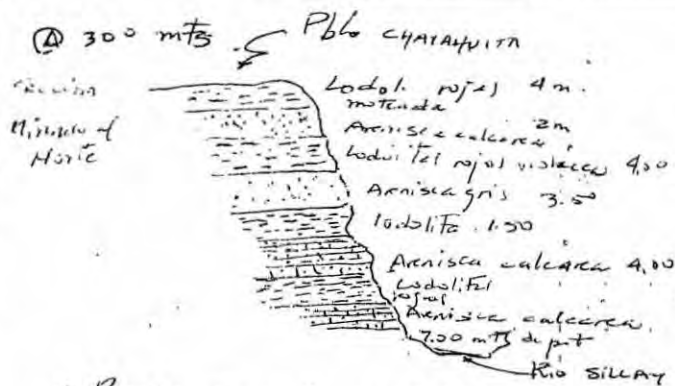 Ⓐ 300 mts
Pblo CHAYAHUITA
Sección
Mirando al
Norte
Lodoli. rojas 4 m.
moteada
Arenisca calcárea 2m
Lodolitas rojas violacea 4,00
Arenisca gris 3.50
lodolita 1.50
Arenisca calcárea 4,00
Lodolitas
rojas
Arenisca calcárea
7.00 mts de pot
Rio SILLAY